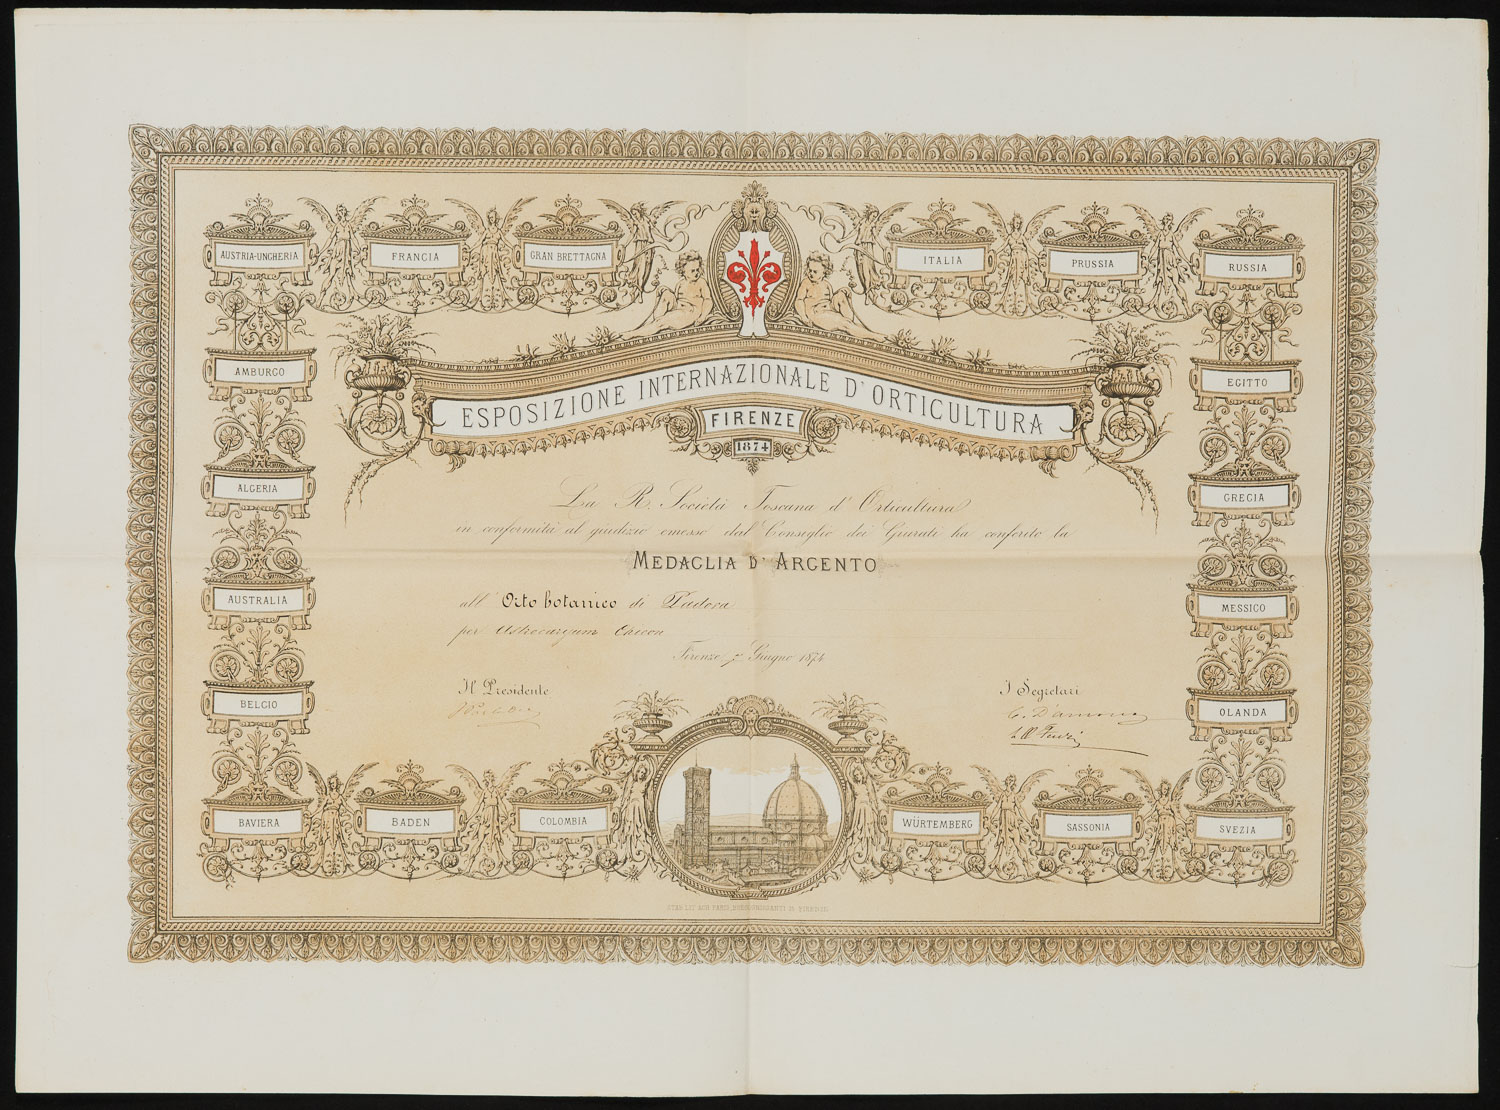 AUSTRIA-UNGHERIA
FRANCIA
GRAN BRETTAGNA
ITALIA
PRUSSIA
RUSSIA
AMBURGO
EGITTO
ESPOSIZIONE INTERNAZIONALE D'ORTICULTURA
FIRENZE
1874
ALGERIA
GRECIA
La R. Società Toscana d'Orticultura
in conformità al giudizio emesso dal Consiglio dei Giurati ha conferito la
MEDAGLIA D'ARGENTO
AUSTRALIA
MESSICO
all' Orto botanico di Padova
per Astrocaryum
Firenze, Giugno 1874
BELGIO
OLANDA
Il Presidente
I Segretari
C. D'Ancona
BAVIERA
BADEN
COLOMBIA
WÜRTEMBERG
SASSONIA
SVEZIA
STAB. LIT.